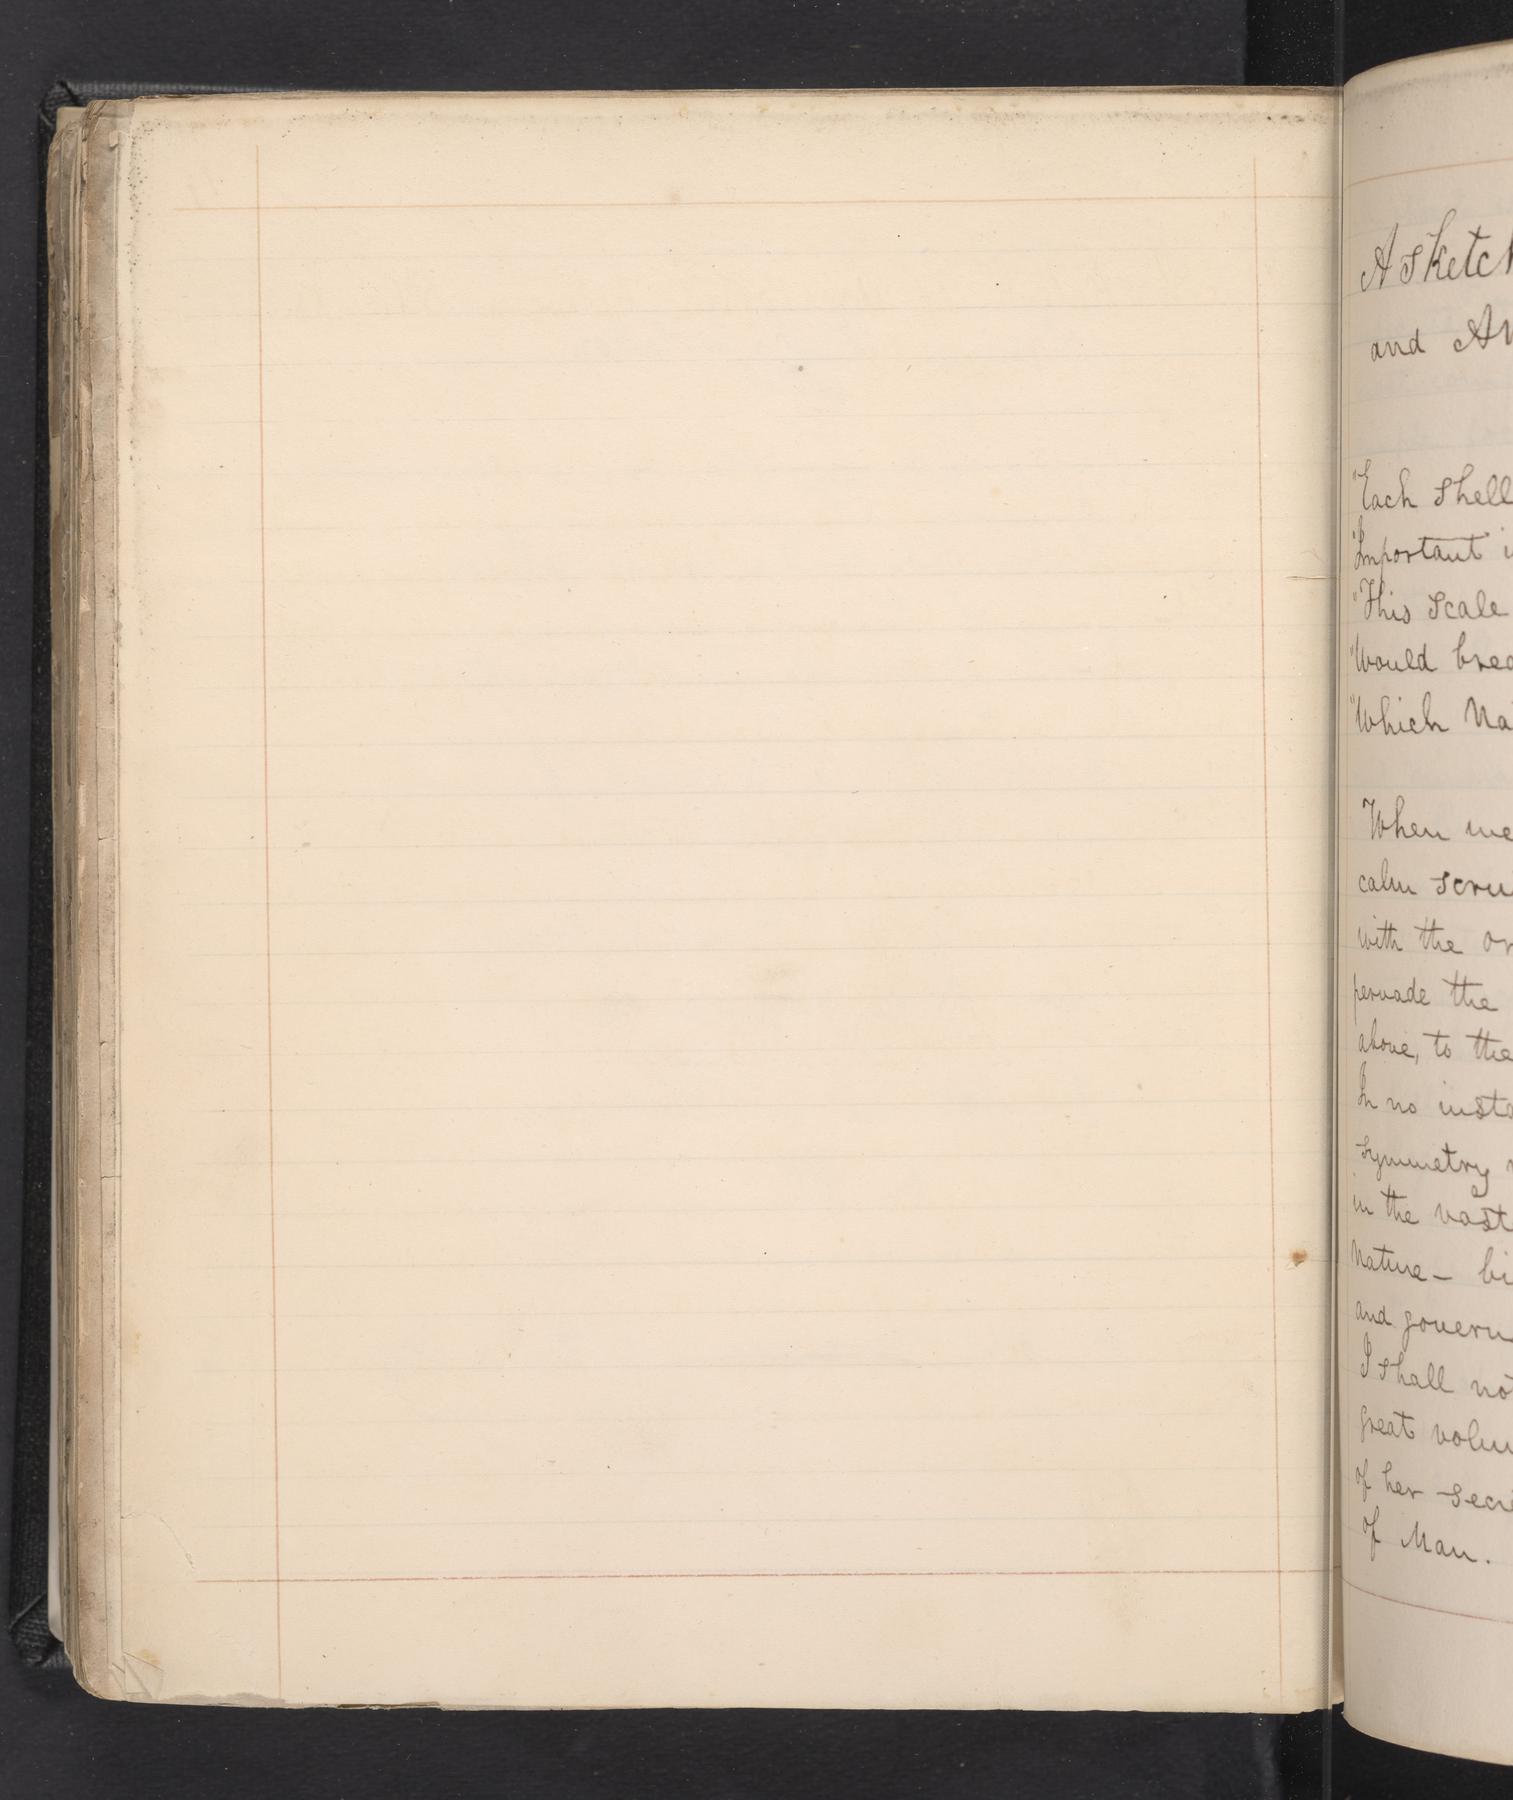 A Sketch
and An
"Each Shell
"Important i
"This Scale
"Would brea
"Which Na
When we
calm scru
with the or
pervade the
above, to the
In no insta
symmetry
in the vast
Nature — bi
and govern
I shall not
great volu
of her secr
of Man.